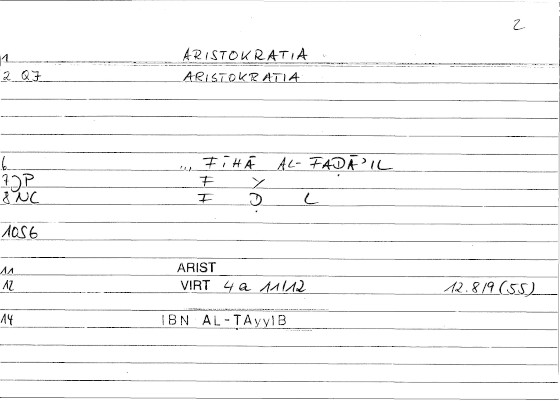 2
1 ARISTOKRATIA
2 Q7 ARISTOKRATIA
6 ... FĪHĀ AL-FAḌĀʾIL
7 JP F Y
8 NC F Ḍ L
10S6
11 ARIST
12 VIRT 4a 11/12 12.8/9(5S)
14 IBN AL-ṬAyyIB